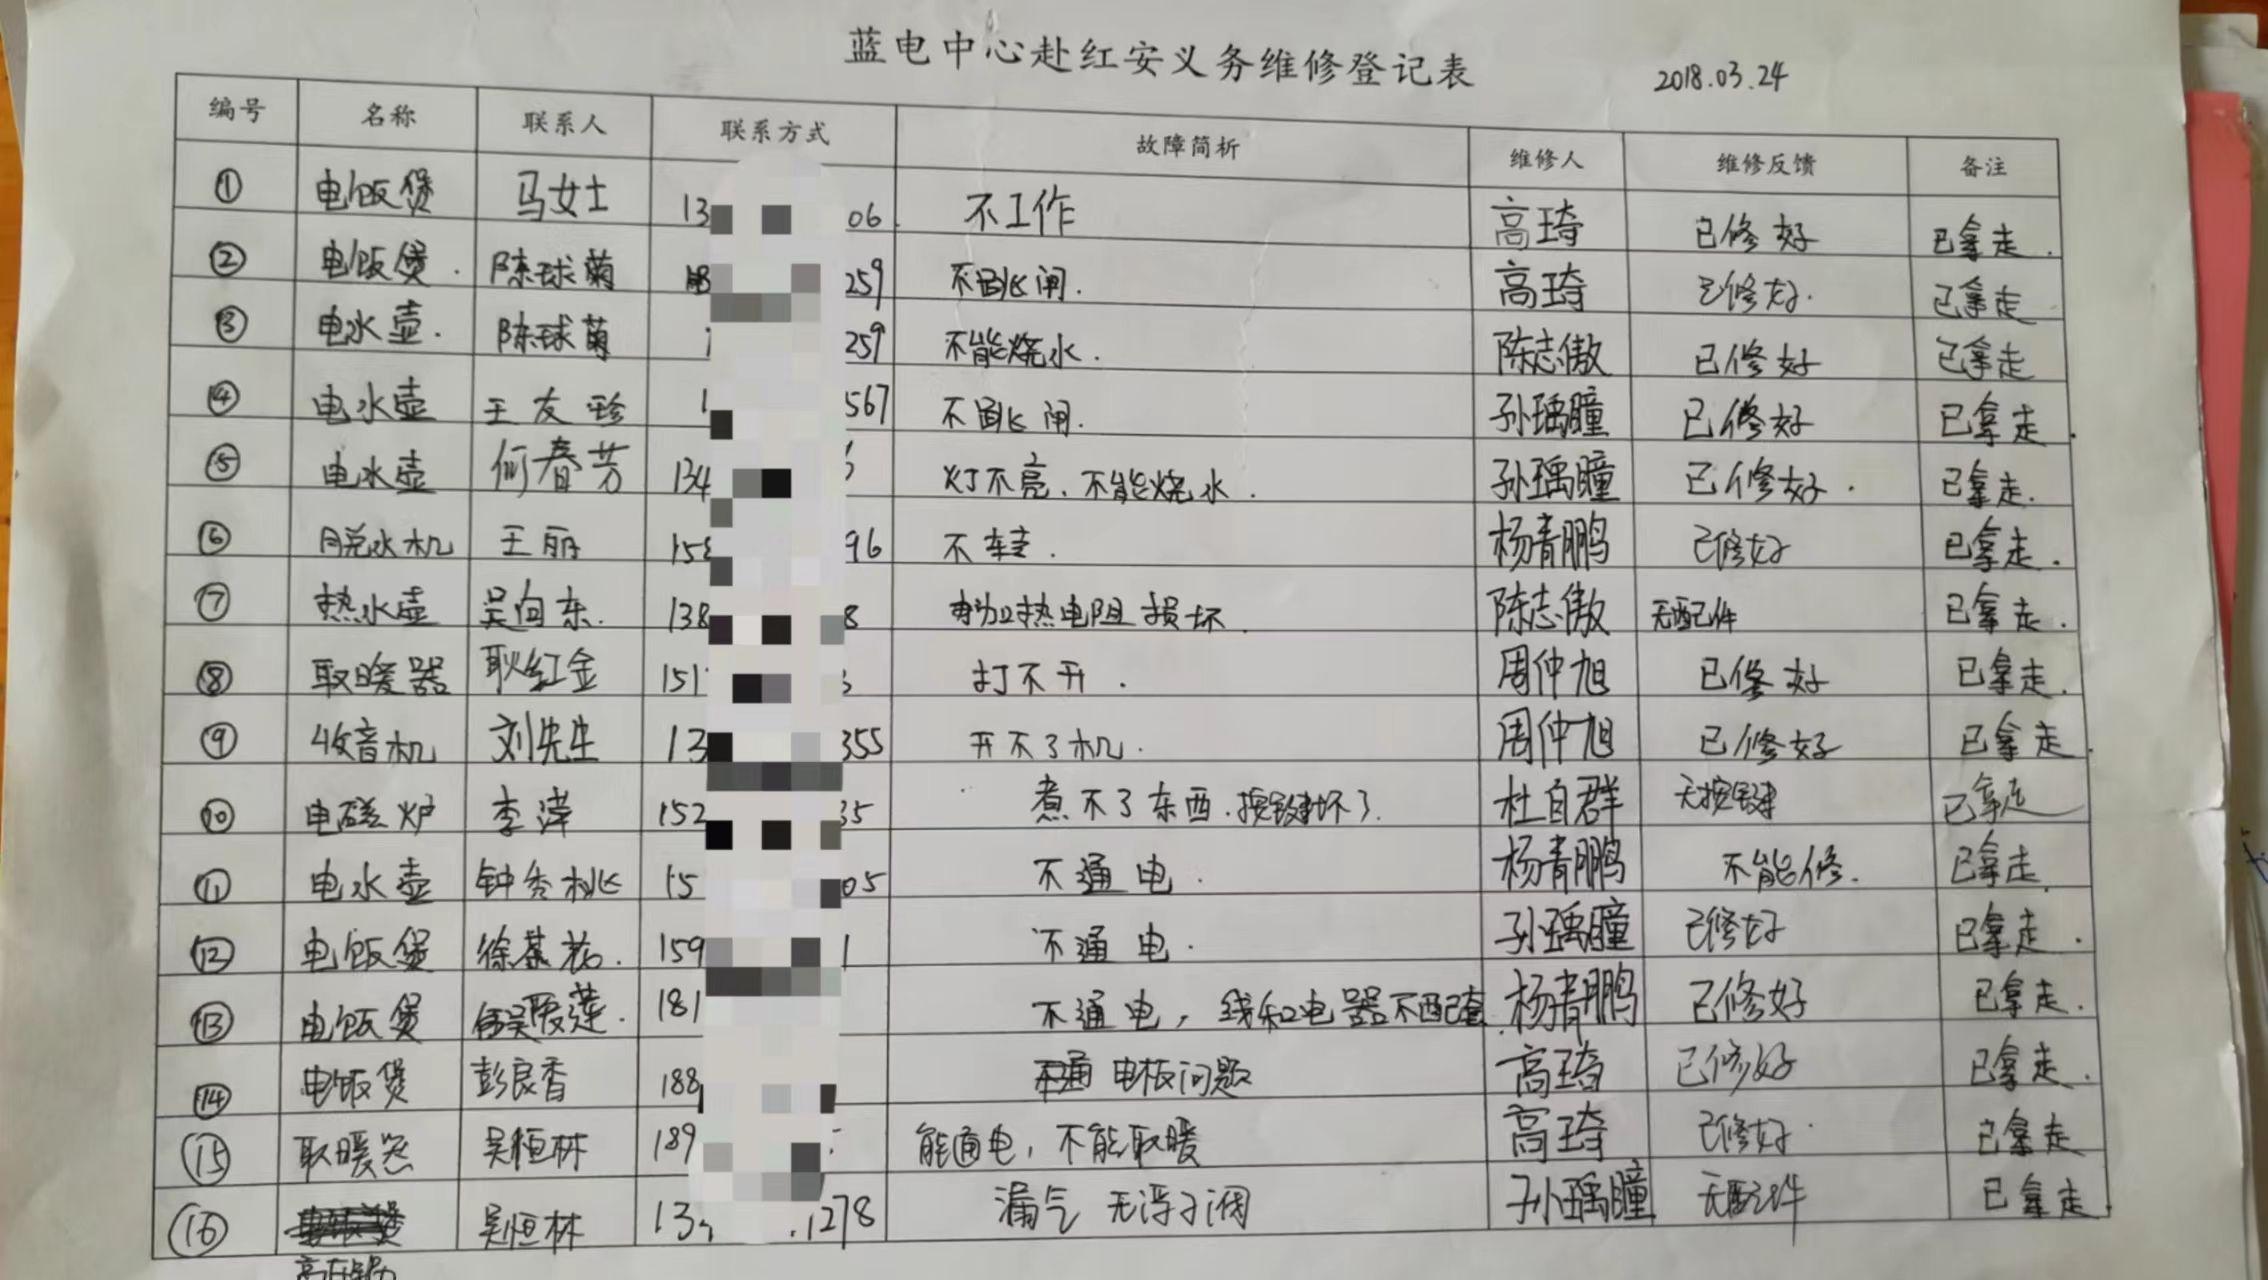 蓝电中心赴红安义务维修登记表 2018.03.24
编号 名称 联系人 联系方式 故障简析 维修人 维修反馈 备注
① 电饭煲 马女士 13 06 不工作 高琦 已修好 已拿走.
② 电饭煲. 陈球菊 259 不跳闸. 高琦 已修好. 已拿走
③ 电水壶. 陈球菊 259 不能烧水. 陈志傲 已修好 已拿走
④ 电水壶 王友珍 1 567 不跳闸. 孙瑀瞳 已修好 已拿走.
⑤ 电水壶 何春芳 134 灯不亮、不能烧水. 孙瑀瞳 已修好. 已拿走.
⑥ 脱水机 王丽 158 96 不转. 杨青鹏 已修好 已拿走.
⑦ 热水壶 吴向东. 138 8 加热电阻损坏. 陈志傲 无配件 已拿走.
⑧ 取暖器 耿红金 151 打不开. 周仲旭 已修好 已拿走.
⑨ 收音机 刘先生 13 355 开不了机. 周仲旭 已修好 已拿走.
⑩ 电磁炉 李萍 152 35 煮不了东西.按键坏了. 杜自群 无按键 已拿走
⑪ 电水壶 钟秀桃 15 05 不通电. 杨青鹏 不能修. 已拿走.
⑫ 电饭煲 徐 159 1 不通电. 孙瑀瞳 已修好 已拿走.
⑬ 电饭煲 莲. 181 不通电，线和电器不配套. 杨青鹏 已修好 已拿走.
⑭ 电饭煲 彭良香 188 电板问题 高琦 已修好 已拿走.
⑮ 取暖器 吴恒林 189 能通电，不能取暖 高琦 已修好. 已拿走
⑯ 吴恒林 13 1278 漏气 无浮子阀 孙瑀瞳 无配件 已拿走.
高压锅